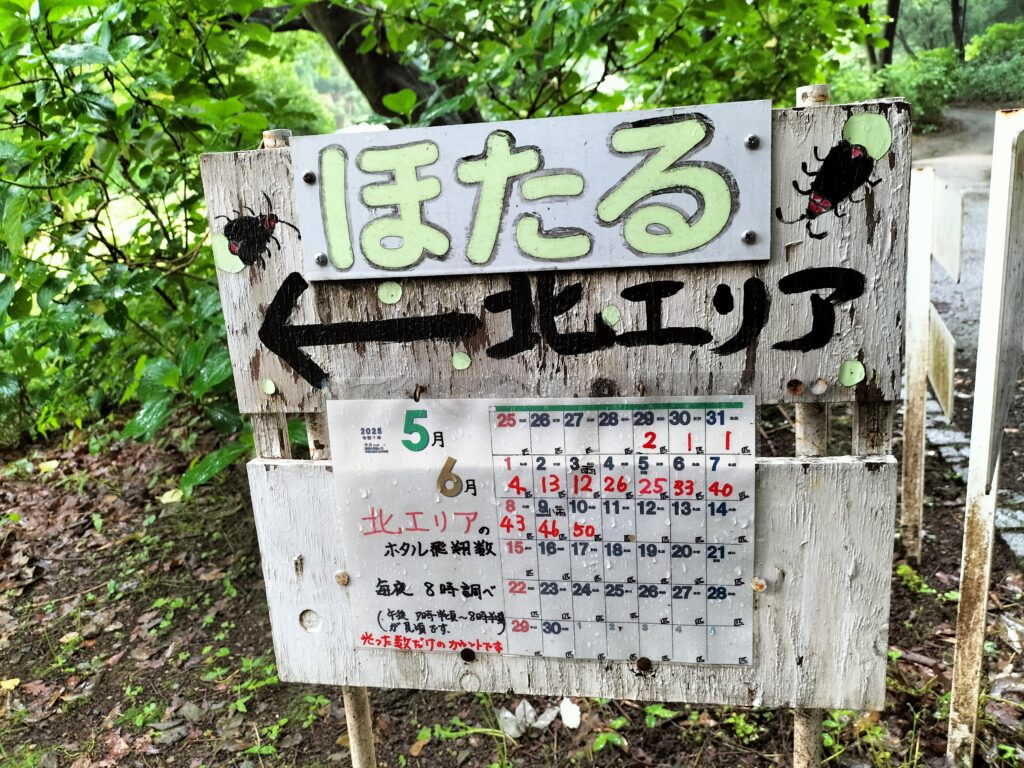 ほたる
北エリア
2025
令和7年
5月
6月
25 26 27 28 29 30 31
2 1 1
1 2 3 4 5 6 7
4 13 12 26 25 33 40
8 9 10 11 12 13 14
43 46 50
15 16 17 18 19 20 21
22 23 24 25 26 27 28
29 30 1 2 3 4
匹
北エリアの
ホタル飛翔数
毎夜 8時調べ
が見頃です.
光った数だけのカウントです